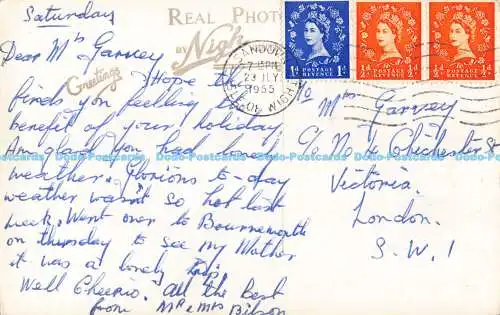 Saturday
REAL PHOTO
BY Nigh
Greetings
Dear Mrs Garvey
Hope this
finds you feeling the
benefit of your holiday
Am glad you had good
weather. Glorious to-day
weather wasn't so hot last
week. Went over to Bournemouth
on thursday to see my Mother
it was a lovely trip
Well Cheerio. All the best
from Mr & Mrs Bilson
7 15 PM
23 JLY
1955
1d POSTAGE REVENUE 1d
½d POSTAGE REVENUE ½d
½d POSTAGE REVENUE ½d
To Mrs Garvey
C/o No 4 Chichester St
Victoria.
London.
S.W.1
Dodo-Postcards Dodo-Postcards Dodo-Postcards Dodo-Postcards Dodo-Postcards